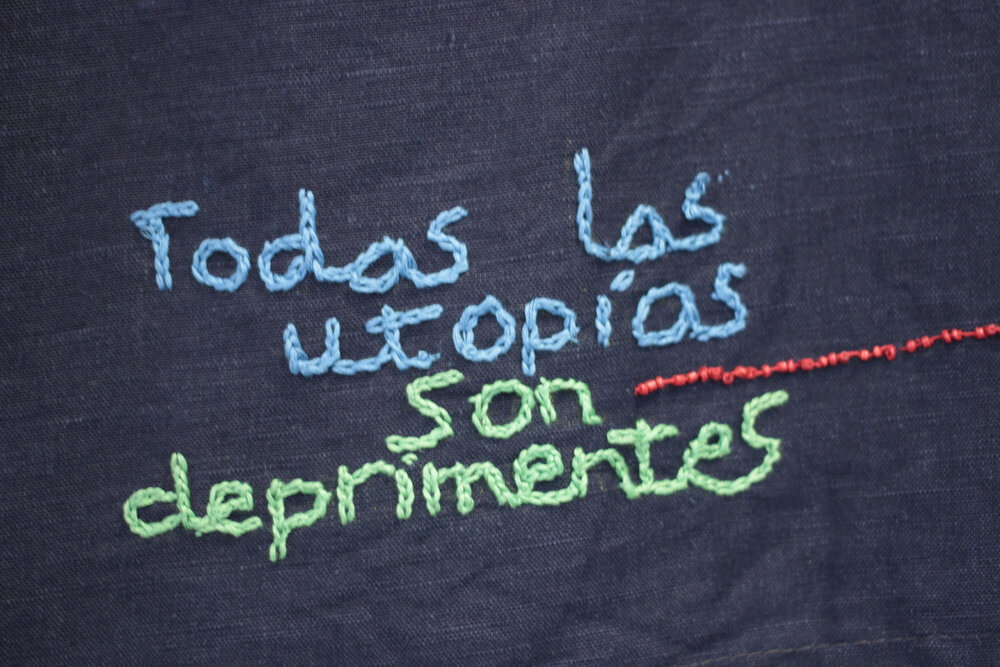 Todas las
utopías
son
deprimentes